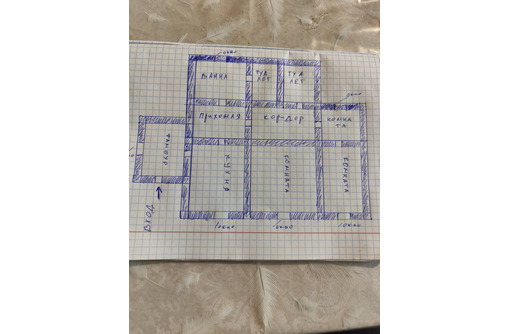 окно
ВАННА
ТУА
ЛЕТ
ТУА
ЛЕТ
окно
ПРИХОЖАЯ
КОРИДОР
КОМНА
ТА
ТАМБУР
КУХНЯ
КОМНАТА
КОМНАТА
ВХОД
окно
окно
окно